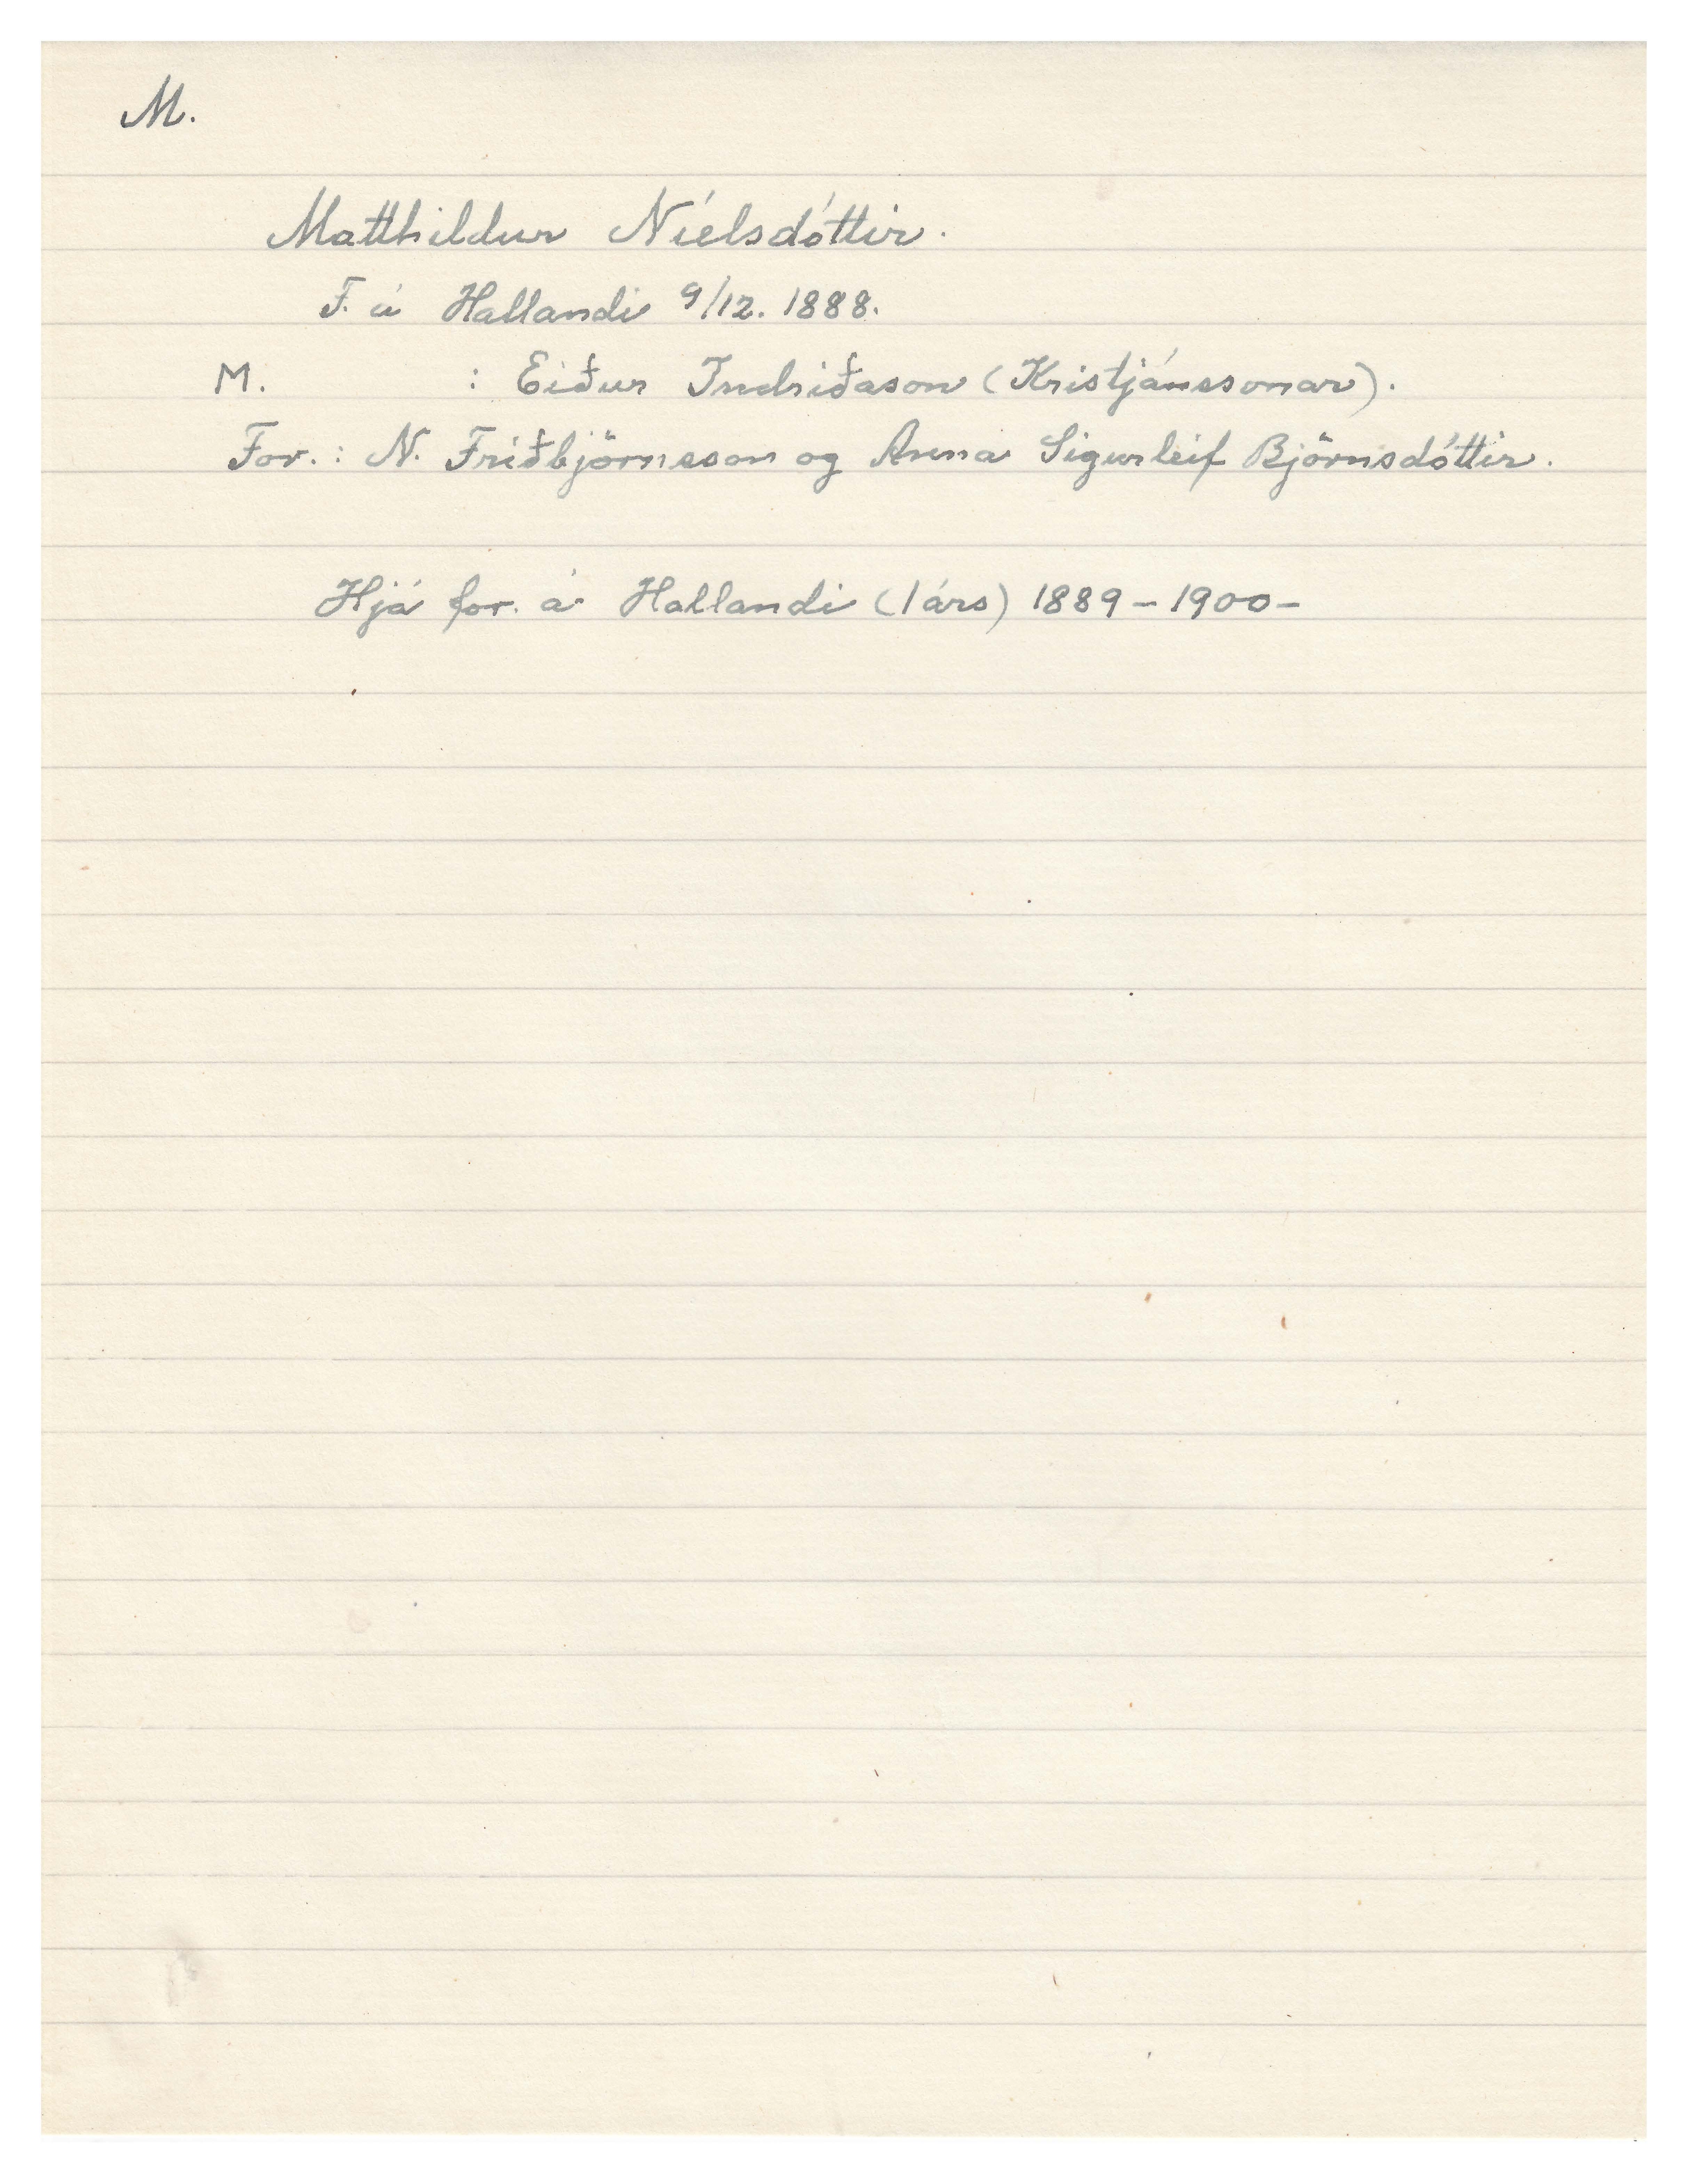 M.
Matthildur Níelsdóttir.
F. á Hallandi 9/12. 1888.
M. : Eiður Indriðason (Kristjánssonar).
For.: N. Friðbjörnsson og Anna Sigurleif Björnsdóttir.
Hjá for. á Hallandi (1 árs) 1889 - 1900 -